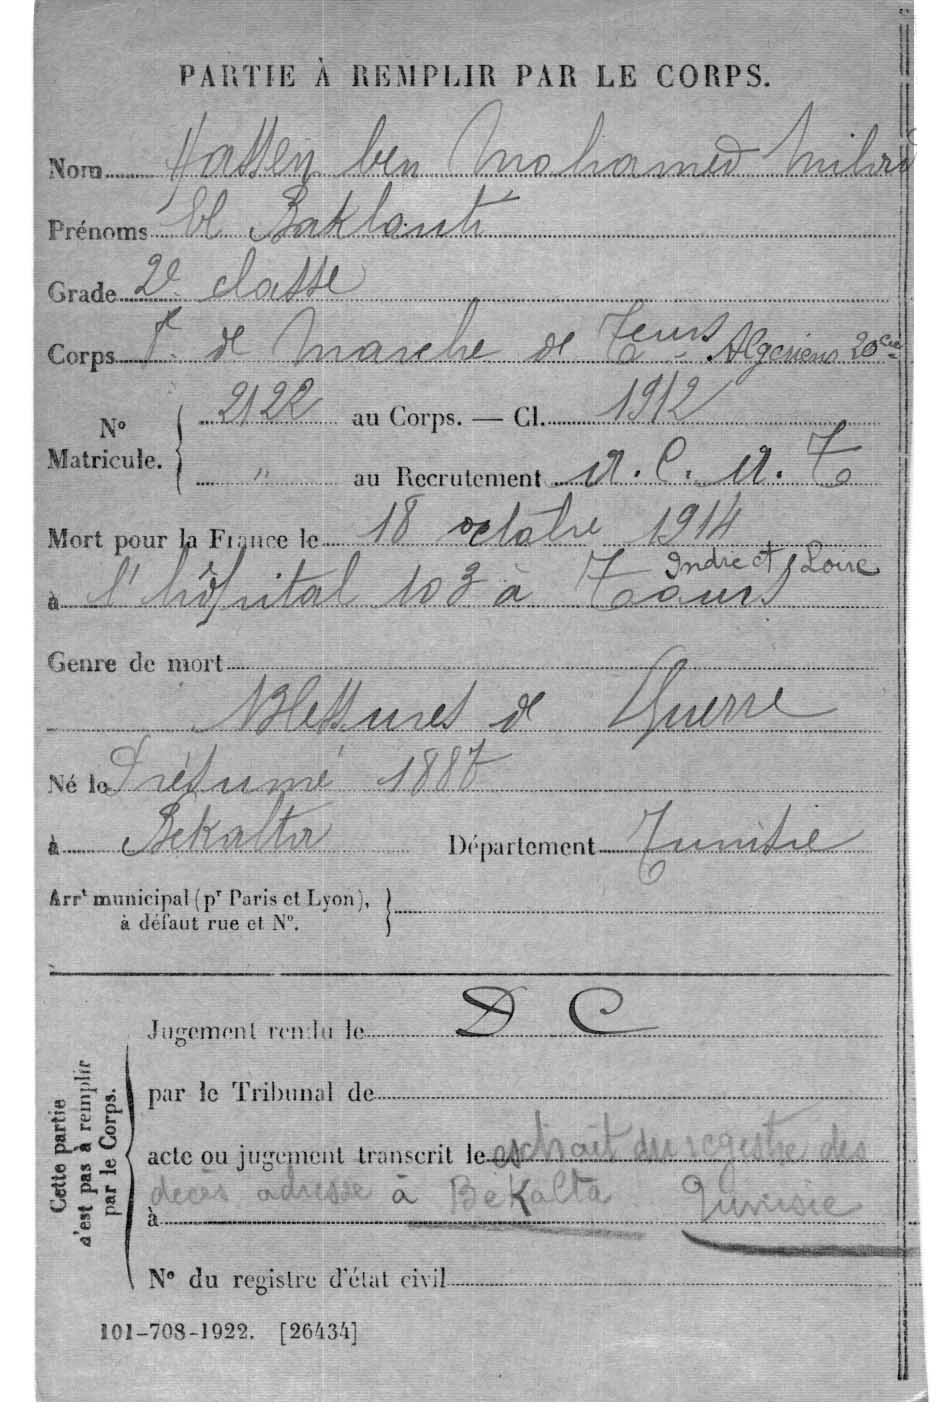 PARTIE À REMPLIR PAR LE CORPS.
Nom Hassen ben Mohamed
Prénoms El Baklouti
Grade 2e classe
Corps de Marche de Teurs Algériens 20e Cie
2122 au Corps. — Cl. 1912
N° Matricule. " au Recrutement a. C. a. T
Mort pour la France le 18 octobre 1914
Indre et Loire
à l'hôpital 103 à Tours
Genre de mort
Blessures de Guerre
Né le Présumé 1887
à Bekalta Département Tunisie
Arrt municipal (pr Paris et Lyon),
à défaut rue et N°.
Jugement rendu le D C
par le Tribunal de
acte ou jugement transcrit le extrait du registre des
décès adressé à Bekalta Tunisie
à
N° du registre d'état civil
Cette partie
n'est pas à remplir
par le Corps.
101-708-1922. [26434]